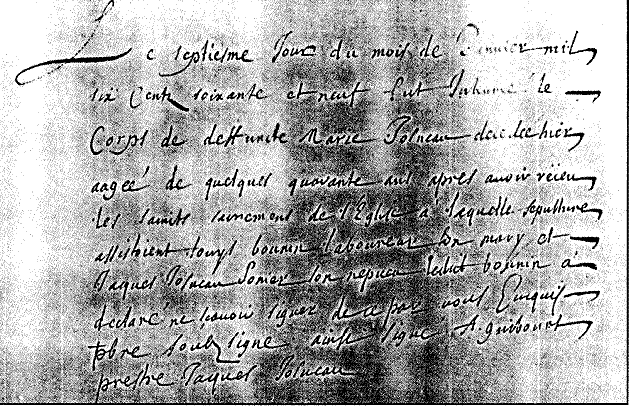 Le septiesme Jour du mois de Janvier mil
six Cents soixante et neuf fut Inhumé le
Corps de deffuncte Marie Posneau decedee hier
aagee de quelques quarante ans apres avoir receu
les saincts sacrement de l'Eglise a laquelle sepulture
assistoient bounin laboureur son mary et
Jaques Posneau son nepveu ledict bounin a
declaré ne scavoir signer de ce par nous Enquis
soubsigne ainsi signe A. Guibourt
prestre Jaques Posneau